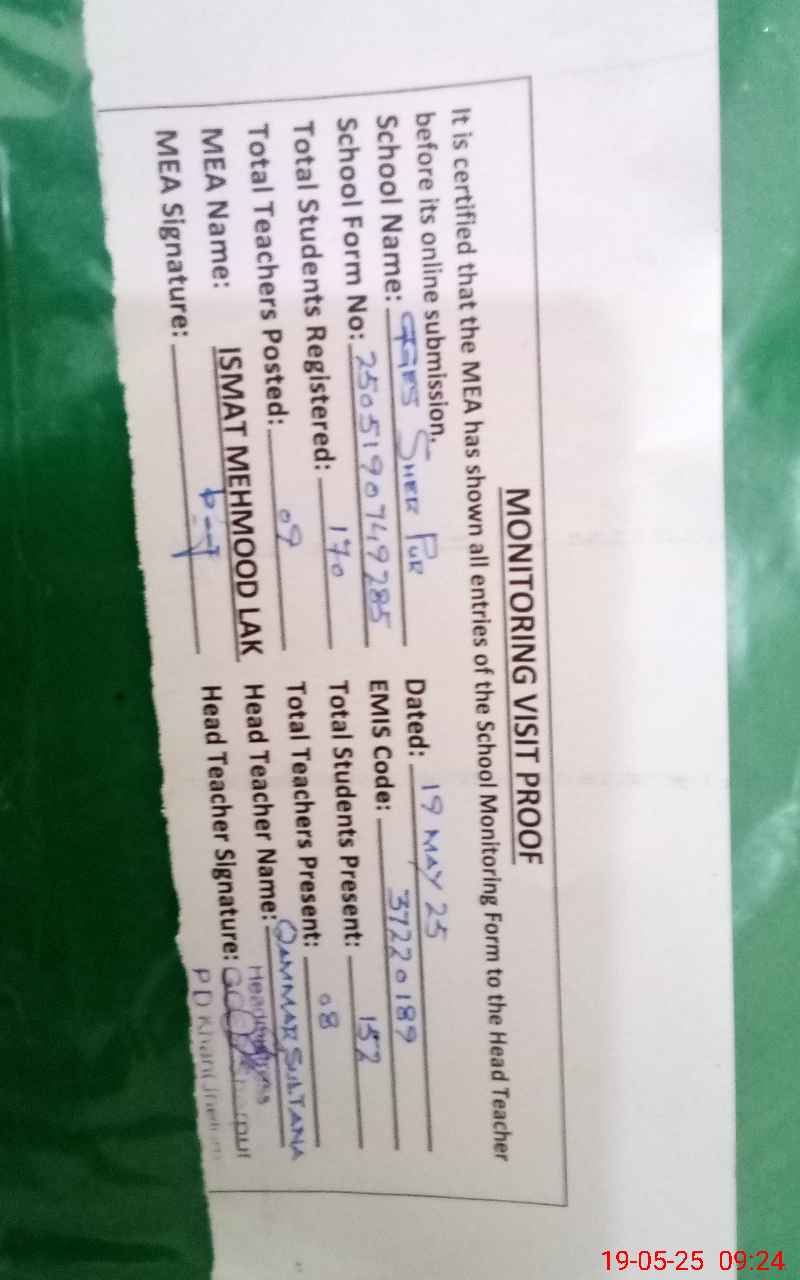 MONITORING VISIT PROOF
It is certified that the MEA has shown all entries of the School Monitoring Form to the Head Teacher
before its online submission.
School Name: GGES SHER PUR Dated: 19 MAY 25
School Form No: 2505190749285 EMIS Code: 37220189
Total Students Registered: 170 Total Students Present: 152
Total Teachers Posted: 09 Total Teachers Present: 08
MEA Name: ISMAT MEHMOOD LAK Head Teacher Name: QAMMAR SULTANA
MEA Signature: Head Teacher Signature:
P D Khan
19-05-25 09:24